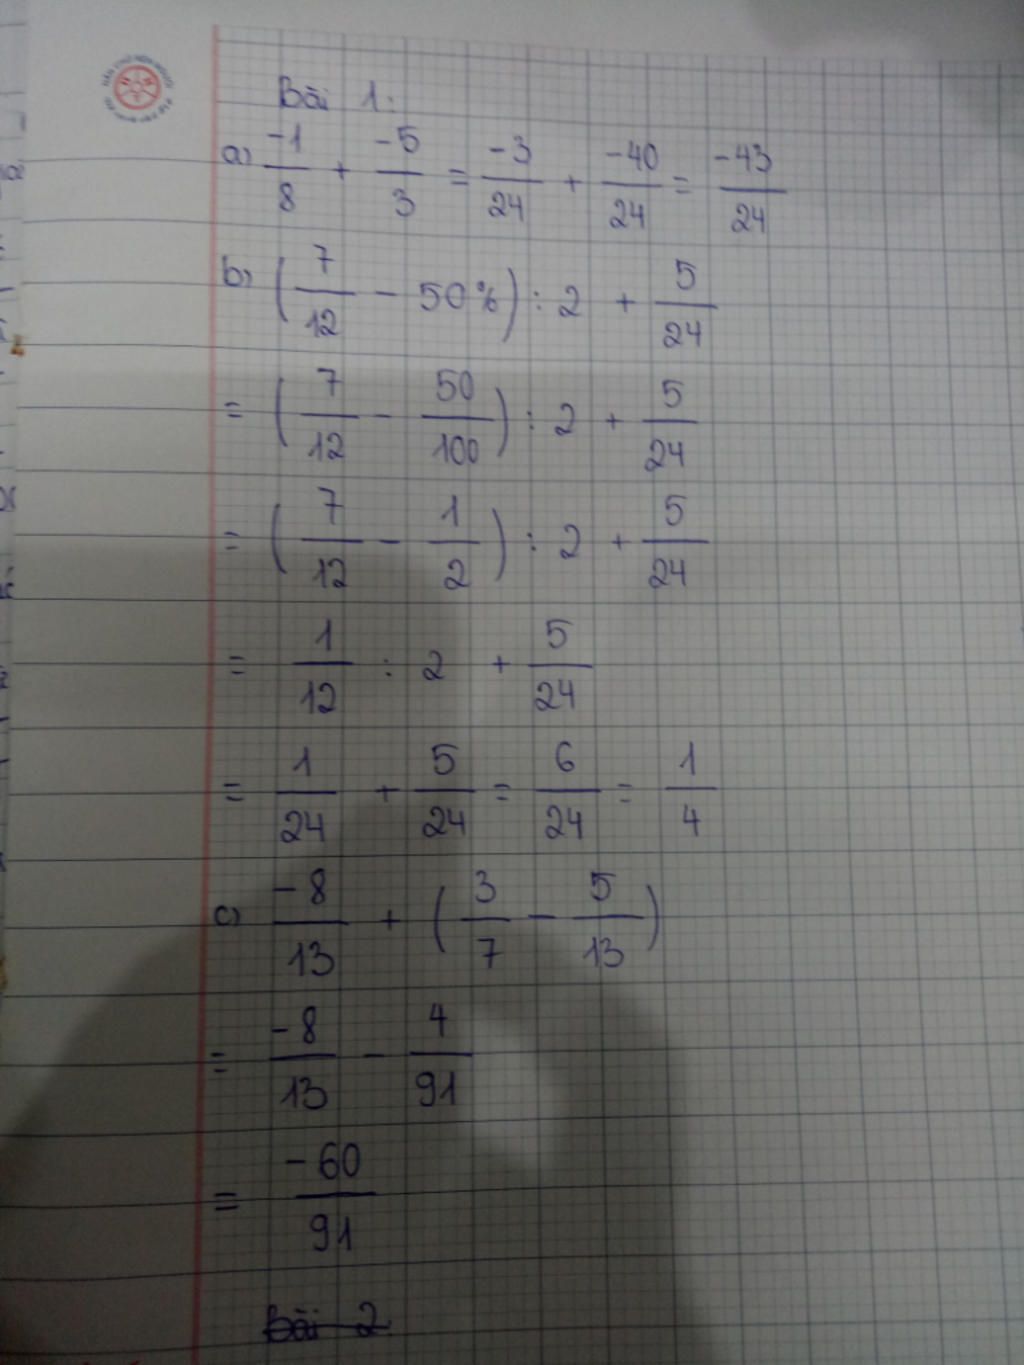 Bài 1.
a) -1/8 + -5/3 = -3/24 + -40/24 = -43/24
b) (7/12 - 50%) : 2 + 5/24
= (7/12 - 50/100) : 2 + 5/24
= (7/12 - 1/2) : 2 + 5/24
= 1/12 : 2 + 5/24
= 1/24 + 5/24 = 6/24 = 1/4
c) -8/13 + (3/7 - 5/13)
= -8/13 - 4/91
= -60/91
Bài 2